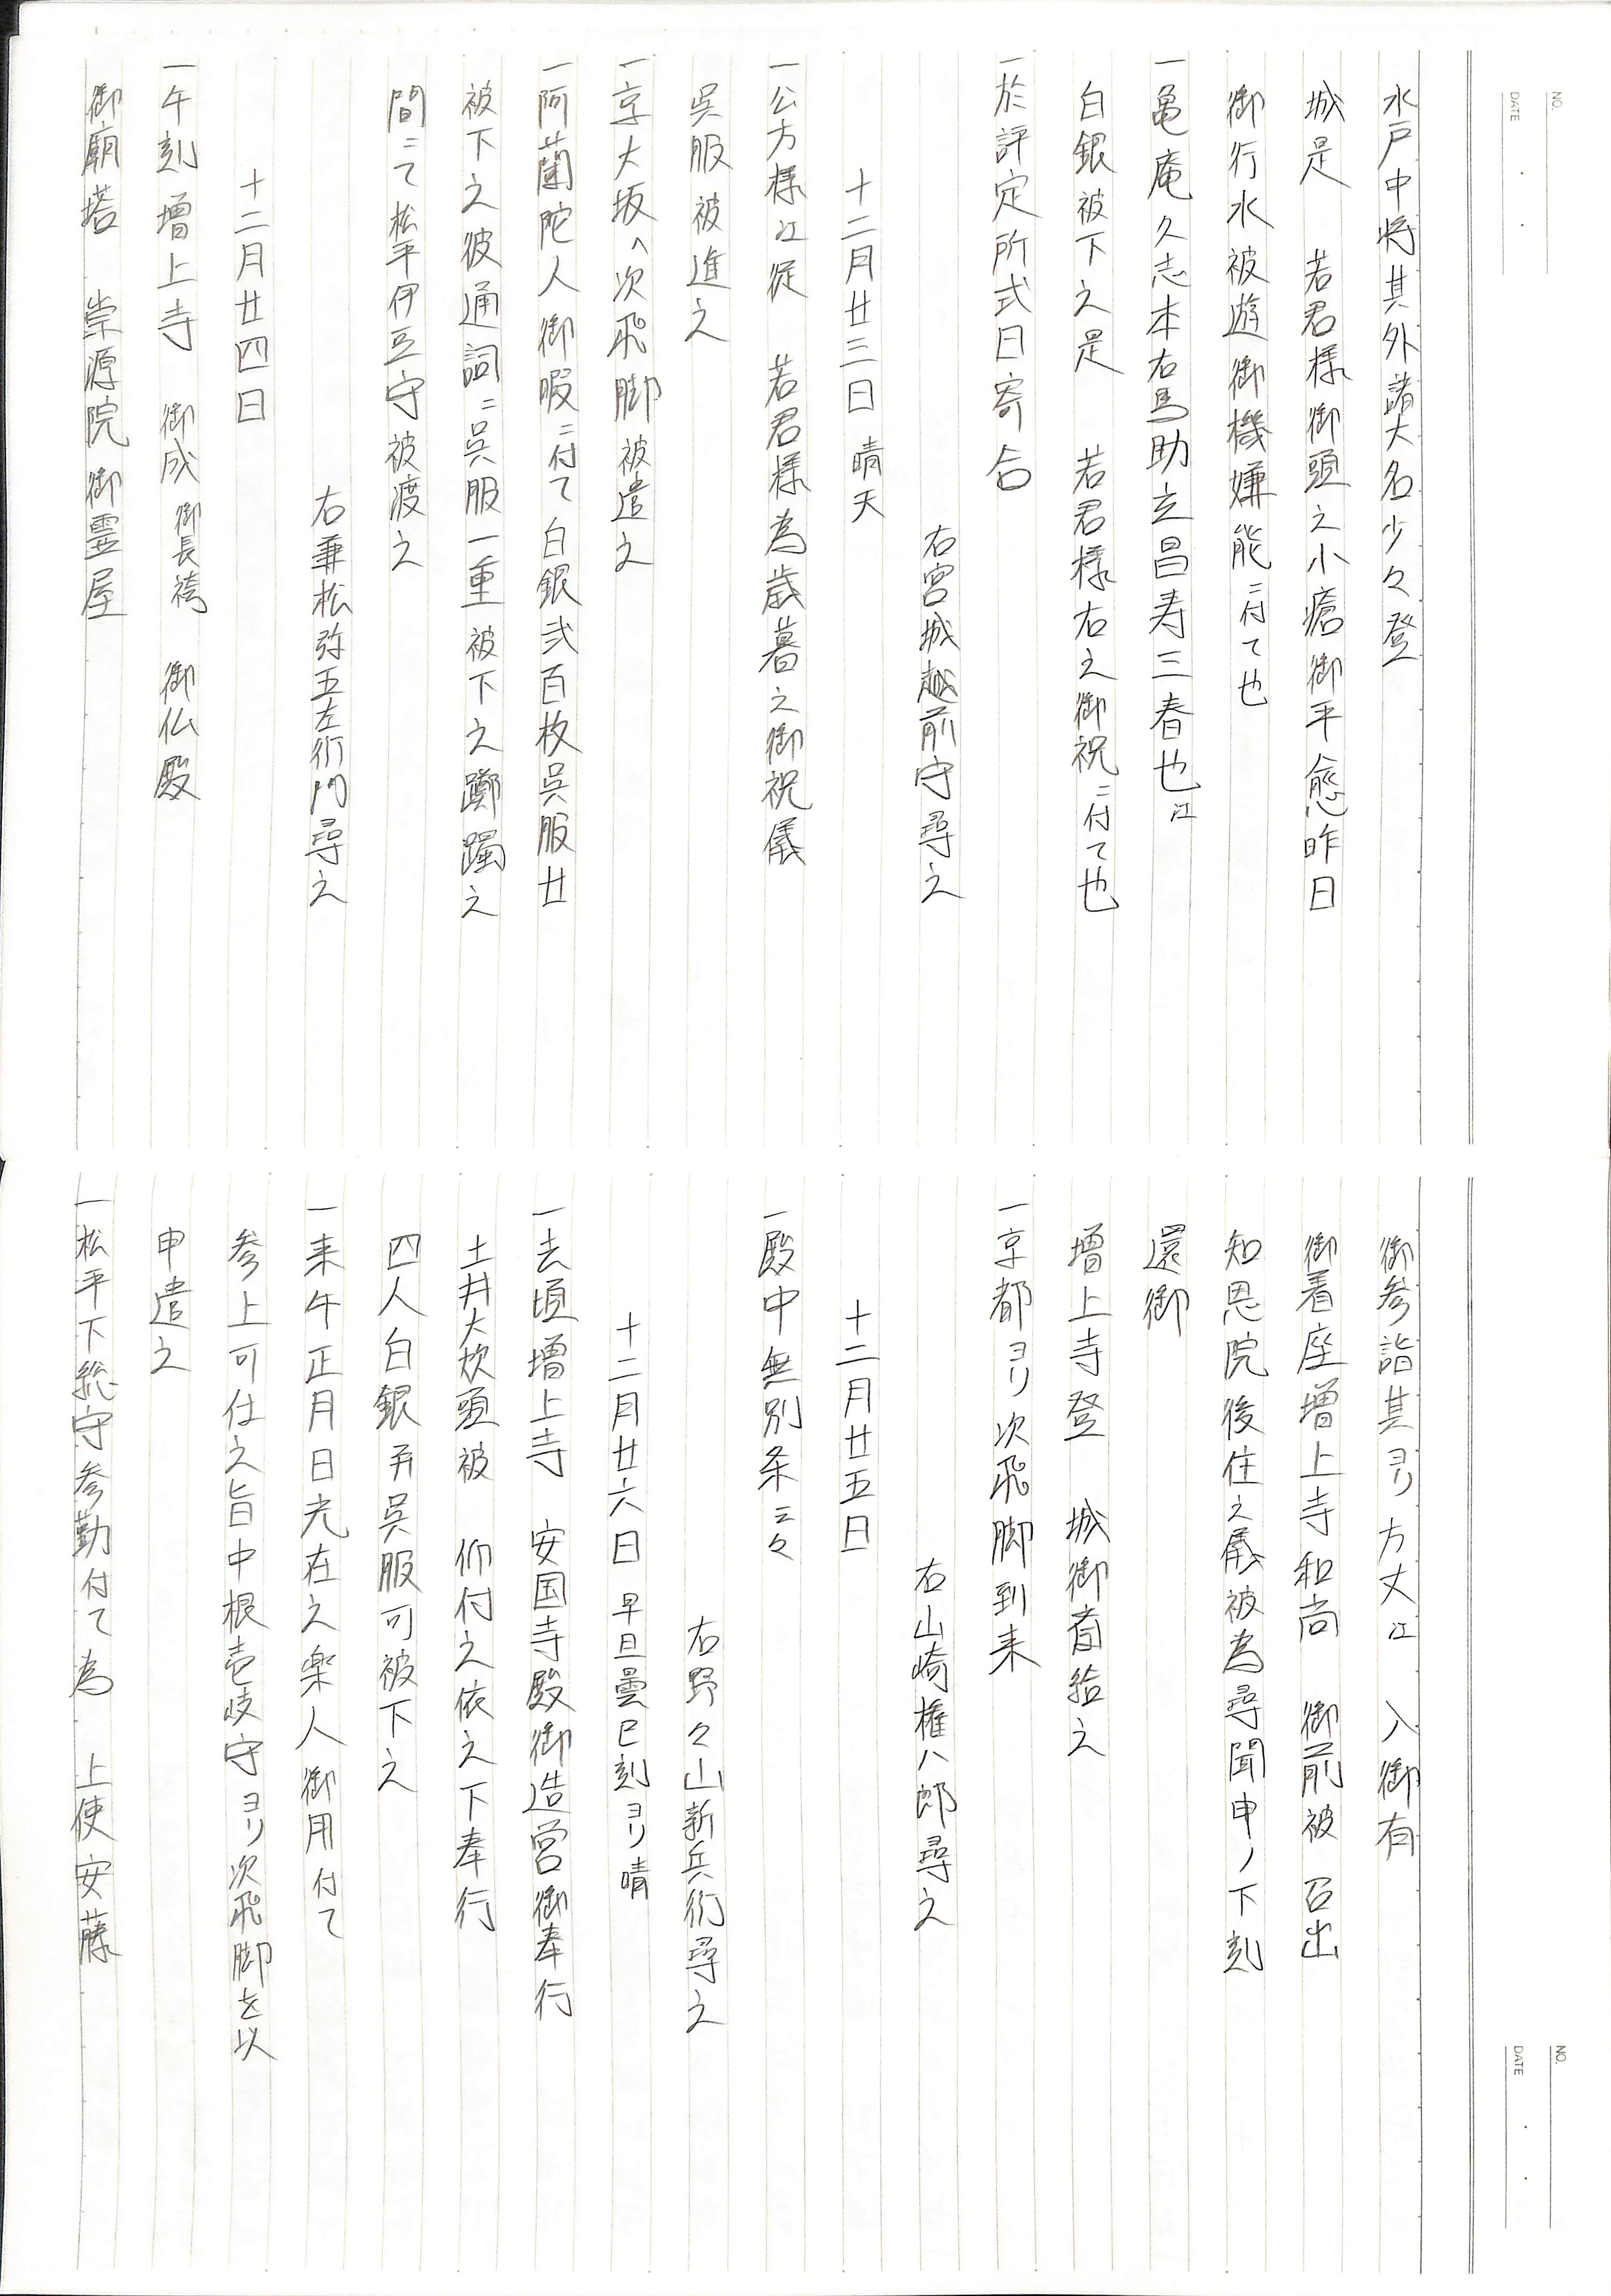 NO.
DATE
水戸中将其外諸大名少々登
城是　若君様御頭之小瘡御平愈昨日
御行水被遊御機嫌能ニ付て也
一亀庵久志本右馬助立昌寿三春也江
白銀被下之是　若君様右之御祝ニ付て也
一於評定所式日寄合
右宮城越前守尋之
十二月廿三日 晴天
一公方様江従　若君様為歳暮之御祝儀
呉服被進之
一京大坂へ次飛脚被遣之
一阿蘭陀人御暇ニ付て白銀弐百枚呉服廿
被下之彼通詞ニ呉服一重被下之躑躅之
間ニて松平伊豆守被渡之
右兼松弥五左衛門尋之
十二月廿四日
一午刻増上寺　御成 御長袴　御仏殿
御廟塔　崇源院御霊屋
NO.
DATE
御参詣其ヨリ方丈江　入御有
御着座増上寺和尚　御前被 召出
知恩院後住之儀被為尋聞申ノ下刻
還御
増上寺登　城御 之
一京都ヨリ次飛脚到来
右山崎権八郎尋之
十二月廿五日
一殿中無別条云々
右野々山新兵衛尋之
十二月廿六日 早旦曇巳刻ヨリ晴
一去頃増上寺　安国寺殿御造営御奉行
土井大炊頭被　仰付之依之下奉行
四人白銀并呉服可被下之
一来午正月日光在之楽人御用付て
参上可仕之旨中根壱岐守ヨリ次飛脚を以
申遣之
一松平下総守参勤付て為　上使安藤